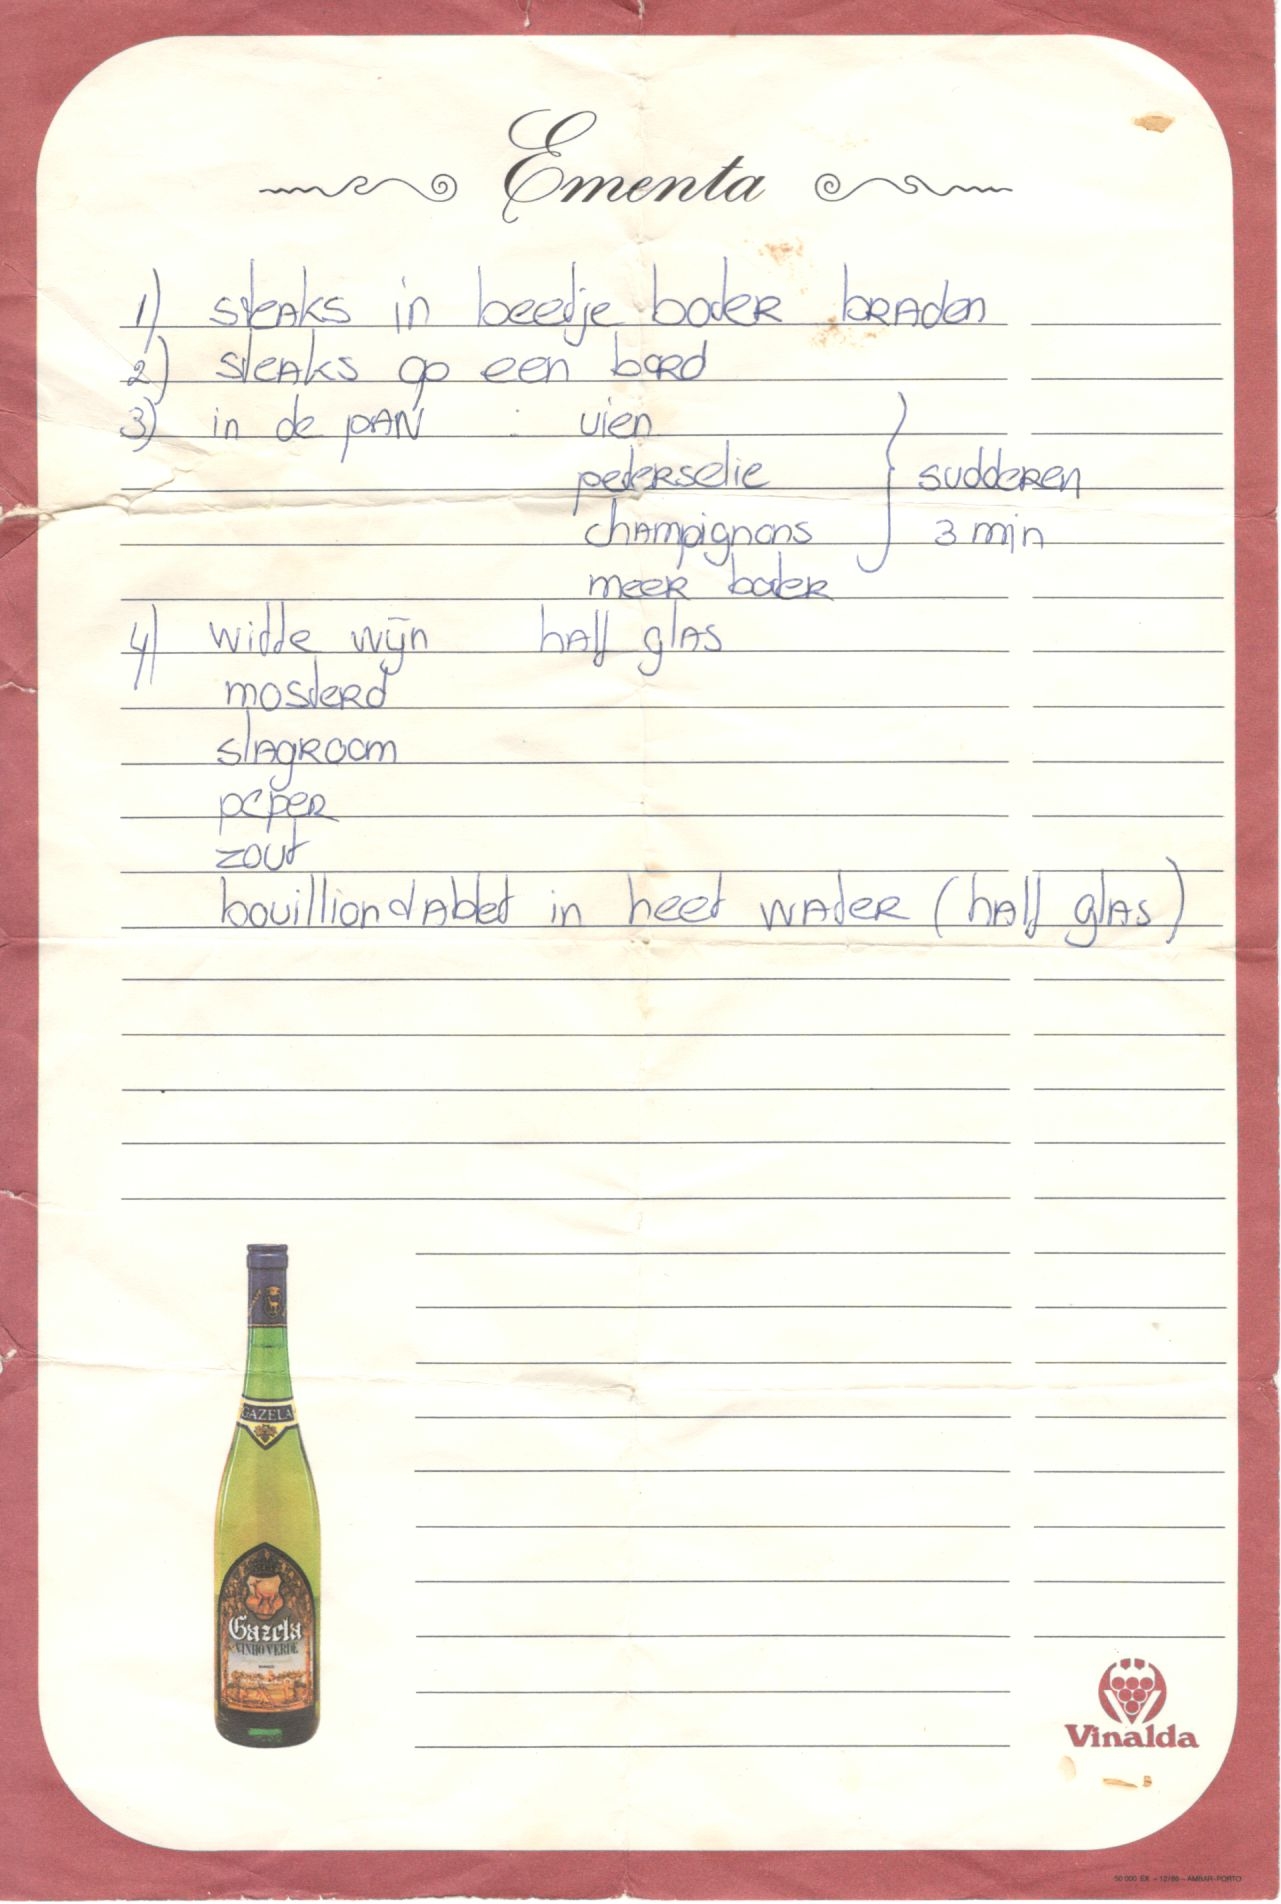 Ementa
1) steaks in beetje boter braden
2) steaks op een bord
3) in de pan : uien
peterselie
champignons
meer boter
} sudderen
3 min
4) witte wijn half glas
mosterd
slagroom
peper
zout
bouilliontablet in heet water (half glas)
GAZELA
Gazela
VINHO VERDE
Vinalda
50 000 EX - 12/86 - AMBAR-PORTO